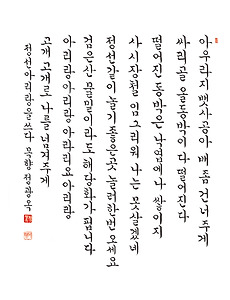 아우라지 뱃사공아 배 좀 건너주게
싸리골 올동박이 다 떨어진다
떨어진 동박은 낙엽에나 쌓이지
사시장철 임 그리워 나는 못살겠네
정선같이 놀기 좋은 곳 놀러 한번 오세요
검은산 물밑이라도 해당화가 핍니다
아리랑 아리랑 아라리요 아리랑
고개 고개로 나를 넘겨주게
정선아리랑을 쓰다 묵향 정광옥